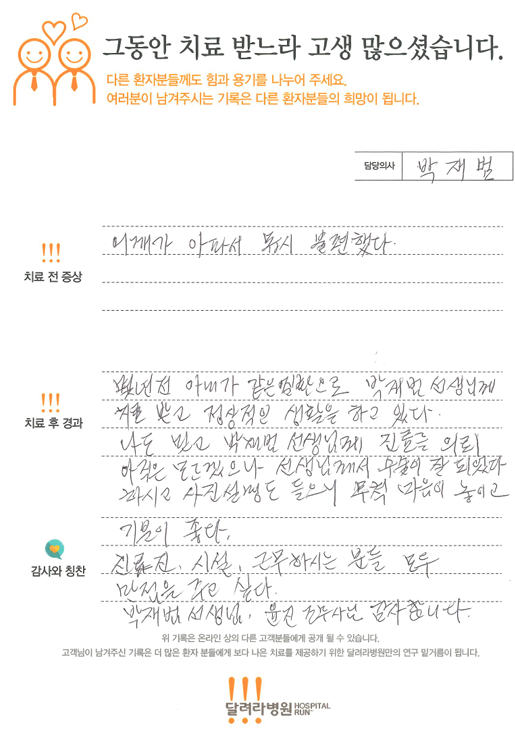 그동안 치료 받느라 고생 많으셨습니다.
다른 환자분들께도 힘과 용기를 나누어 주세요.
여러분이 남겨주시는 기록은 다른 환자분들의 희망이 됩니다.
담당의사 박재범
!!!
치료 전 증상
어깨가 아파서 몹시 불편했다.
!!!
치료 후 경과
몇년전 아내가 같은질환으로 박재범 선생님께
치료 받고 정상적인 생활을 하고 있다.
나도 믿고 박재범 선생님께 진료를 의뢰
아직은 모르겠으나 선생님께서 수술이 잘 되었다
하시고 사진설명도 들으니 무척 마음이 놓이고
기분이 좋다.
감사와 칭찬
진료진, 시설, 근무하시는 분들 모두
만점을 주고 싶다.
박재범 선생님, 윤진 감사합니다.
위 기록은 온라인 상의 다른 고객분들에게 공개 될 수 있습니다.
고객님이 남겨주신 기록은 더 많은 환자 분들에게 보다 나은 치료를 제공하기 위한 달려라병원만의 연구 밑거름이 됩니다.
!!!
달려라병원 HOSPITAL RUN